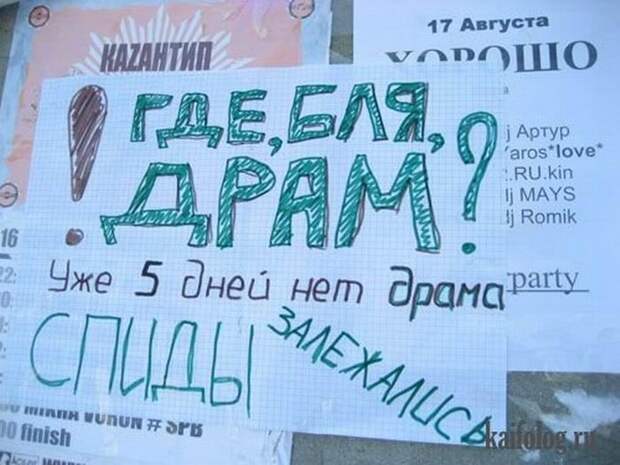 КАZАНТИП
17 Августа
ХОРОШО
! ГДЕ, БЛЯ,
ДРАМ?
Уже 5 дней нет драма
СПИДЫ
ЗАЛЕЖАЛИСЬ
j Артур
Yaros*love*
.RU.kin
dj MAYS
dj Romik
party
16
22:
VORON # SPB
00 finish
kaifolog.ru